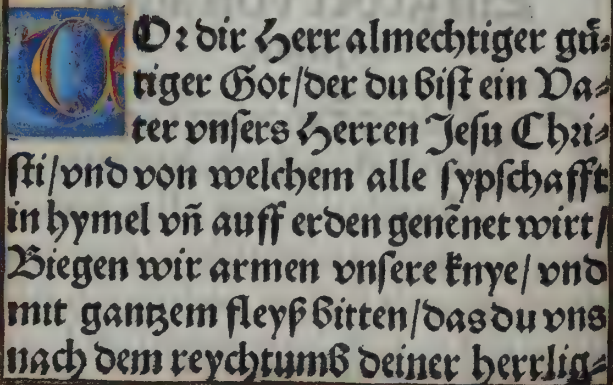 VOr dir Herr almechtiger gü⸗
tiger Got/der du bist ein Va⸗
ter vnsers Herren Jesu Chri⸗
sti/vnd von welchem alle sypschafft
in hymel vñ auff erden genẽnet wirt/
Biegen wir armen vnsere knye/ vnd
mit gantzem fleyß bitten/das du vns
nach dem reychtumb deiner herrlig⸗